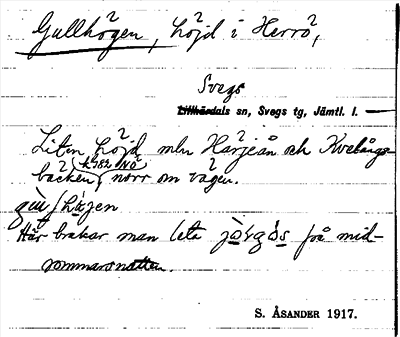 Gullhögen, höjd i Herrö,
Svegs
Lillhärdals sn, Svegs tg, Jämtl. l.
Liten höjd mln Härjeån och Kvelångs-
bäcken (k 782 NO) norr om vägen.
Här brukar man leta på mid-
sommarsnatten.
S. ÅSANDER 1917.